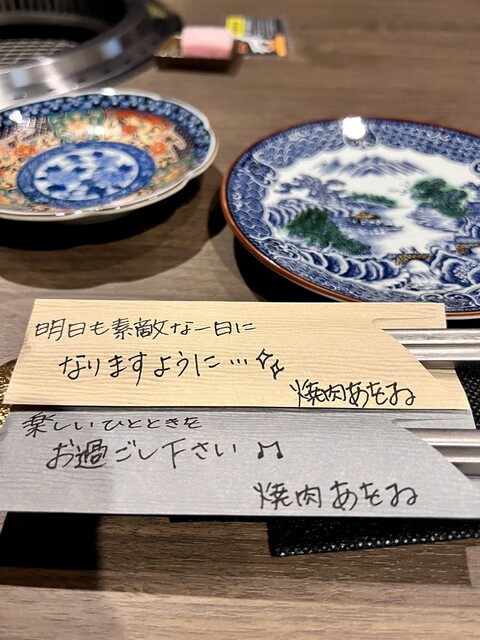 明日も素敵な一日に
なりますように…
焼肉あをね
楽しいひとときを
お過ごし下さい♫
焼肉あをね